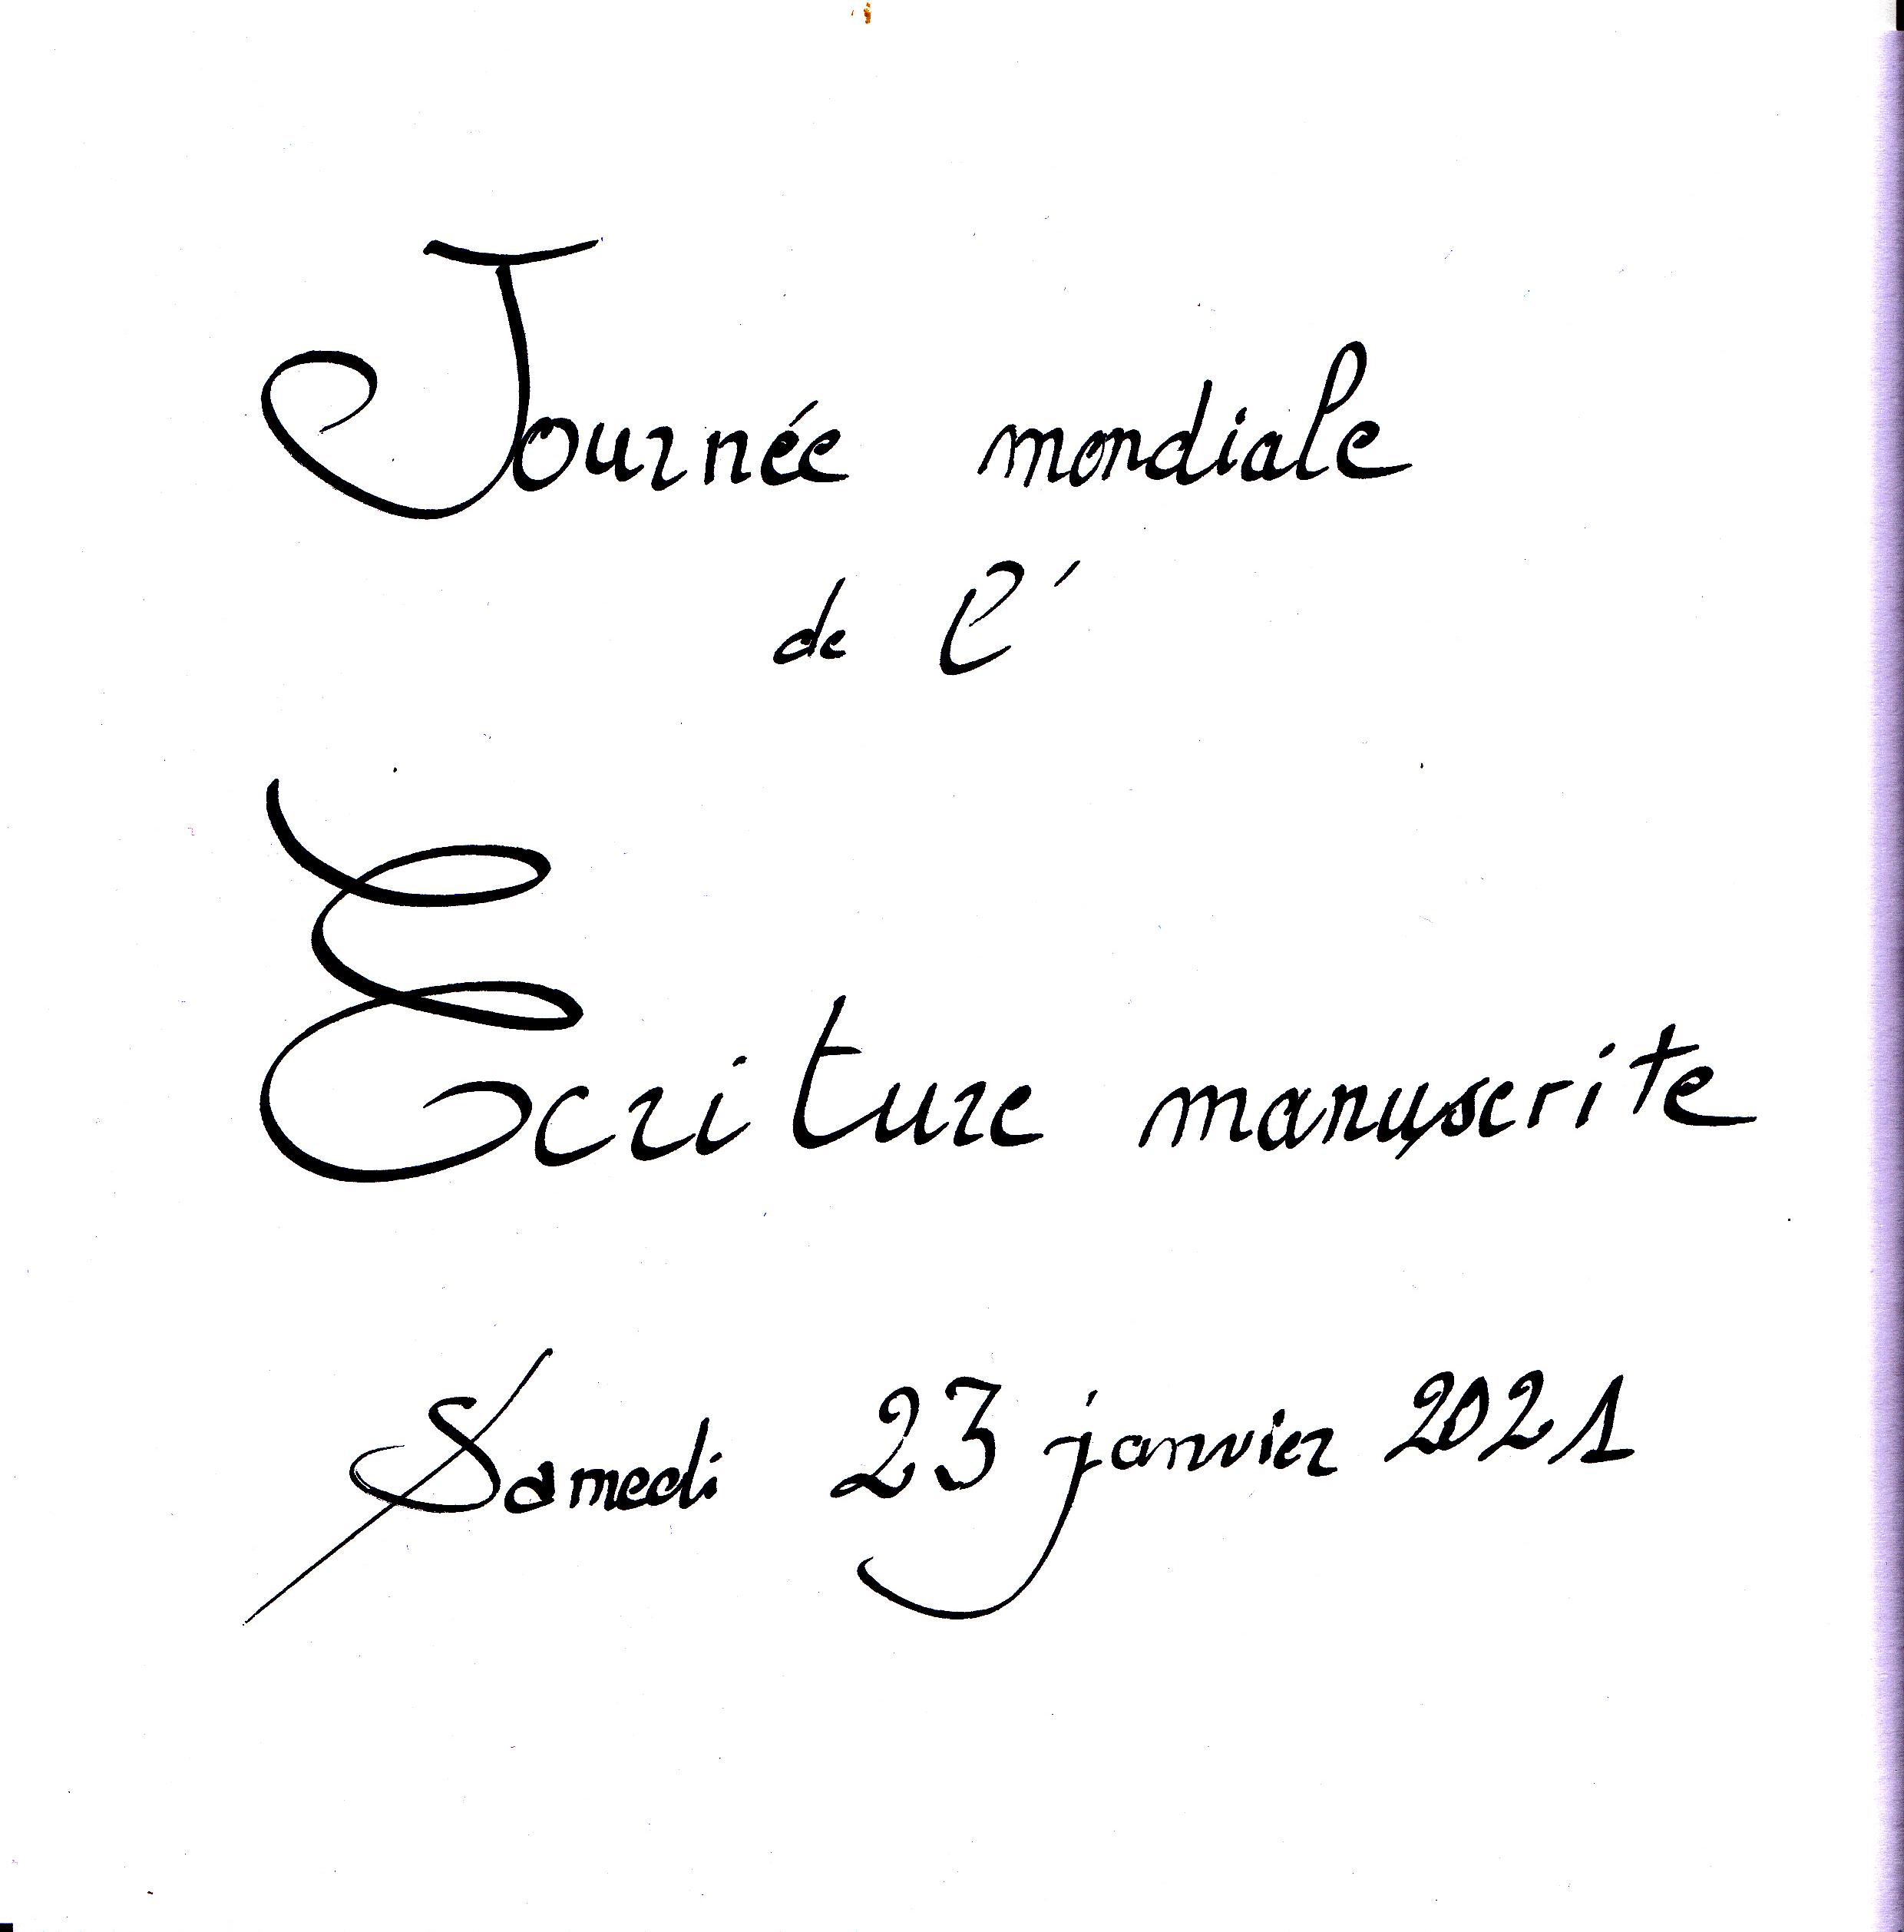 Journée mondiale
de l'
Ecriture manuscrite
Samedi 23 janvier 2021